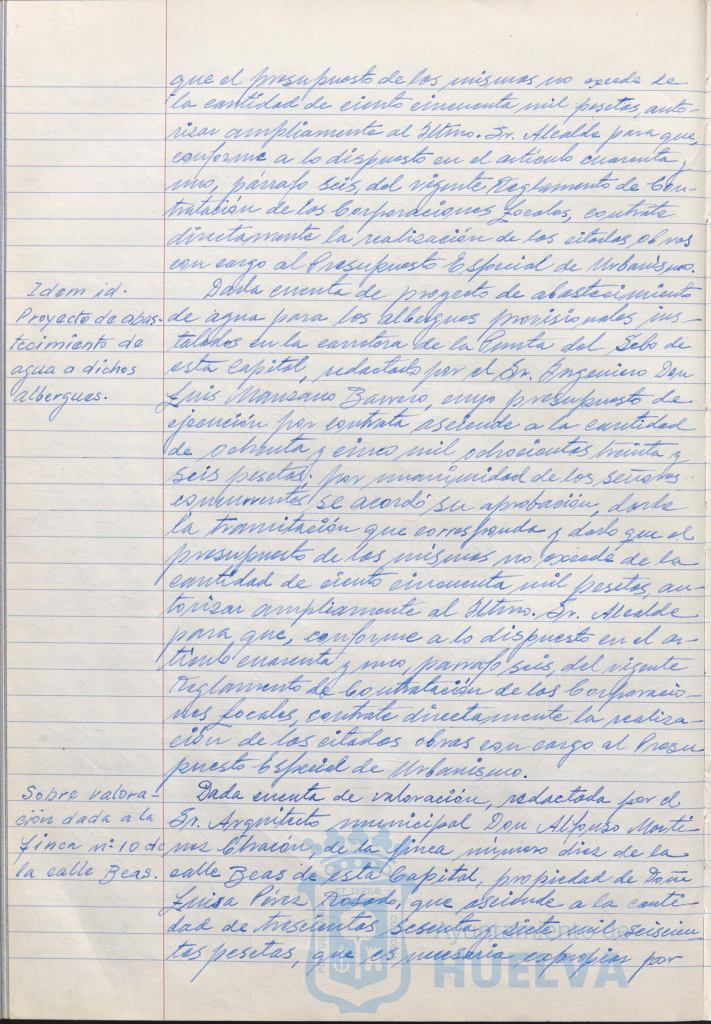 que el presupuesto de los mismos no excede de
la cantidad de ciento cincuenta mil pesetas, auto-
rizar ampliamente al Iltmo. Sr. Alcalde para que,
conforme a lo dispuesto en el artículo cuarenta y
uno, párrafo seis, del vigente Reglamento de Con-
tratación de las Corporaciones Locales, contrate
directamente la realización de las citadas obras
con cargo al Presupuesto Especial de Urbanismo.
Idem id.
Proyecto de abas-
tecimiento de
agua a dichos
albergues.
Dada cuenta de proyecto de abastecimiento
de agua para los albergues provisionales ins-
talados en la carretera de la Punta del Sebo de
esta Capital, redactado por el Sr. Ingeniero Don
Luis Manzano Barrero, cuyo presupuesto de
ejecución por contrata asciende a la cantidad
de ochenta y cinco mil ochocientas treinta y
seis pesetas; por unanimidad de los señores
concurrentes, se acordó su aprobación, darle
la tramitación que corresponda y dado que el
presupuesto de los mismos no excede de la
cantidad de ciento cincuenta mil pesetas, au-
torizar ampliamente al Iltmo. Sr. Alcalde
para que, conforme a lo dispuesto en el ar-
tículo cuarenta y uno, párrafo seis, del vigente
Reglamento de Contratación de las Corporacio-
nes Locales, contrate directamente la realiza-
ción de las citadas obras con cargo al Presu-
puesto Especial de Urbanismo.
Sobre valora-
ción dada a la
finca nº 10 de
la calle Beas.
Dada cuenta de valoración, redactada por el
Sr. Arquitecto municipal Don Alfonso Martí-
nez Chacón, de la finca número diez de la
calle Beas de esta Capital, propiedad de Doña
Luisa Pérez Rosado, que asciende a la canti-
dad de trescientas sesenta y siete mil seiscien-
tas pesetas, que es necesario expropiar por
Ayuntamiento de
HUELVA